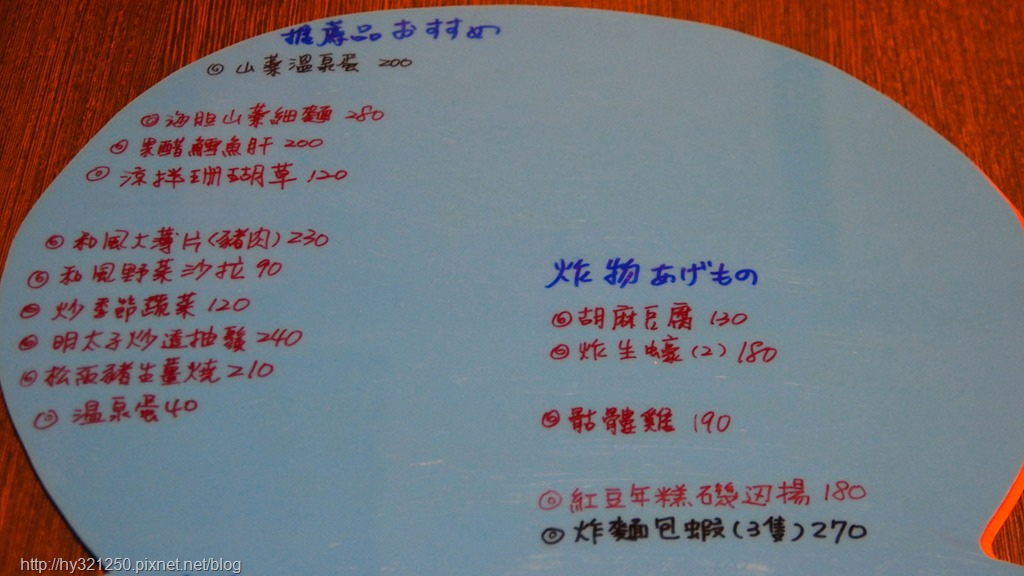 推薦品おすすめ
◎山薬溫泉蛋 200
◎海胆山薬細麵 280
◎果醋鱈魚肝 200
◎涼拌珊瑚草 120
◎和風大薄片(豬肉)230
◎和風野菜沙拉 90
◎炒季節蔬菜 120
◎明太子炒 240
◎松阪豬生薑燒 210
◎溫泉蛋40
炸物あげもの
◎胡麻豆腐 130
◎炸生蠔(2)180
◎骷髏雞 190
◎紅豆年糕磯辺揚 180
◎炸麵包蝦(3隻)270
http://hy321250.pixnet.net/blog